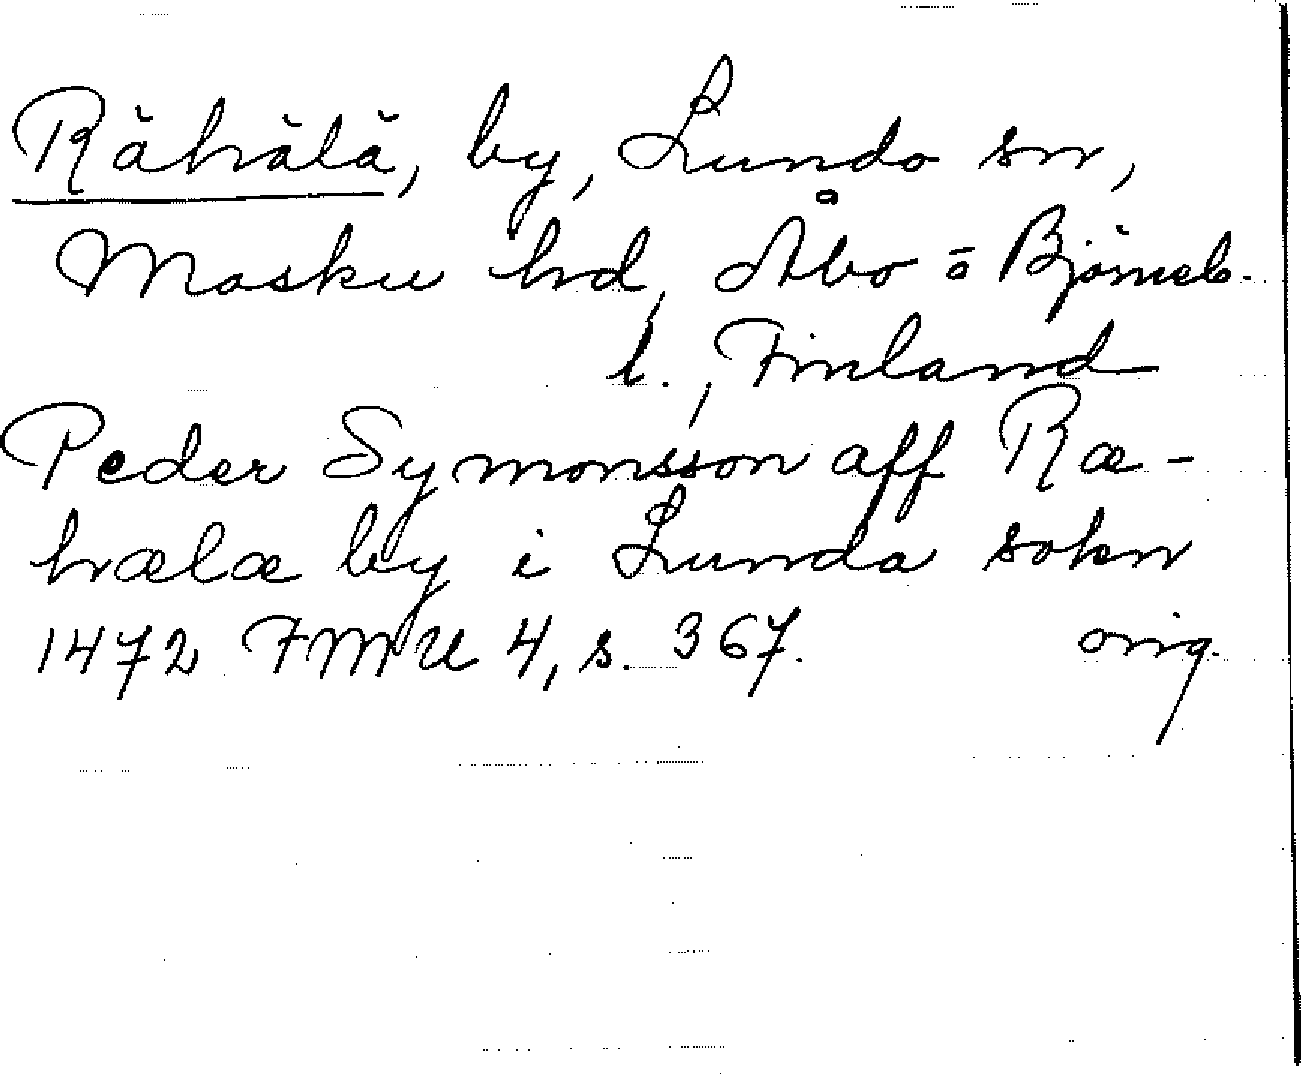 Rähälä, by, Lundo sn,
Masku hd, Åbo o Björneb.
l., Finland
Peder Symonsson aff Ræ-
hælæ by i Lunda sokn
1472 FMU 4, s. 367. orig.